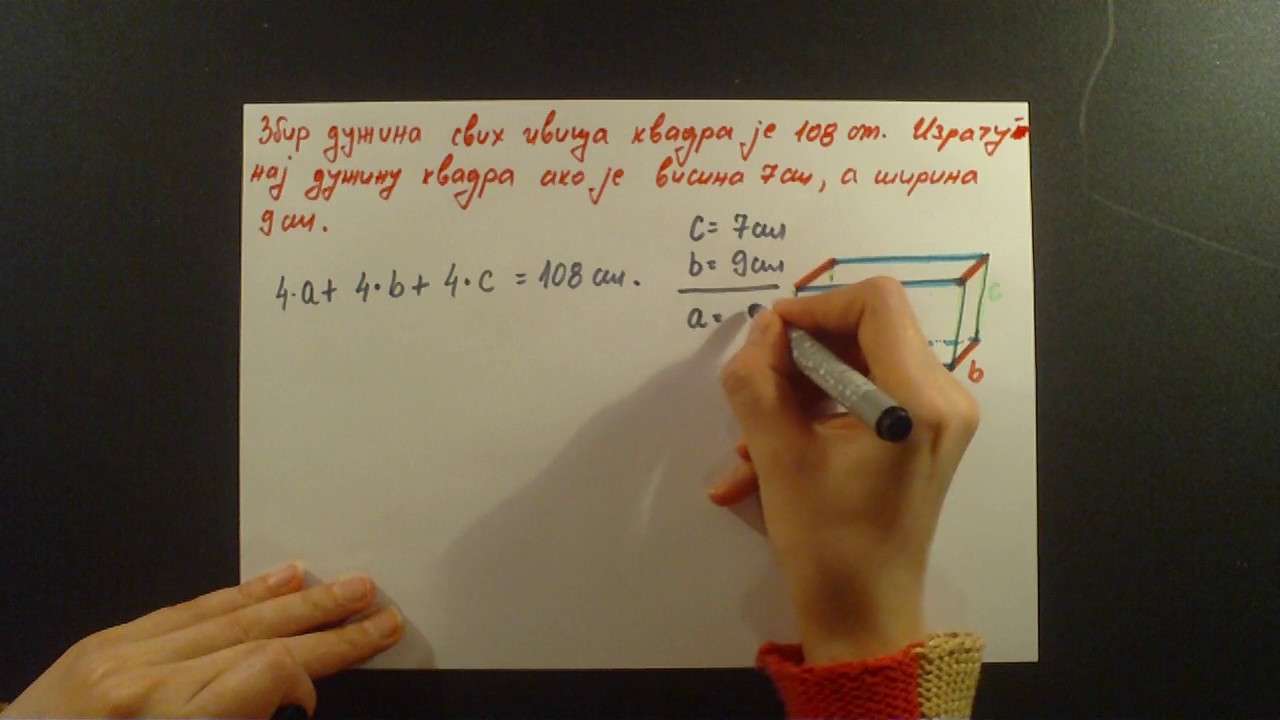 Збир дужина свих ивица квадра је 108 cm. Израчу
нај дужину квадра ако је висина 7cm, а ширина
9 cm.
c = 7cm
b = 9cm
4·a + 4·b + 4·c = 108 cm.
a =
c
b